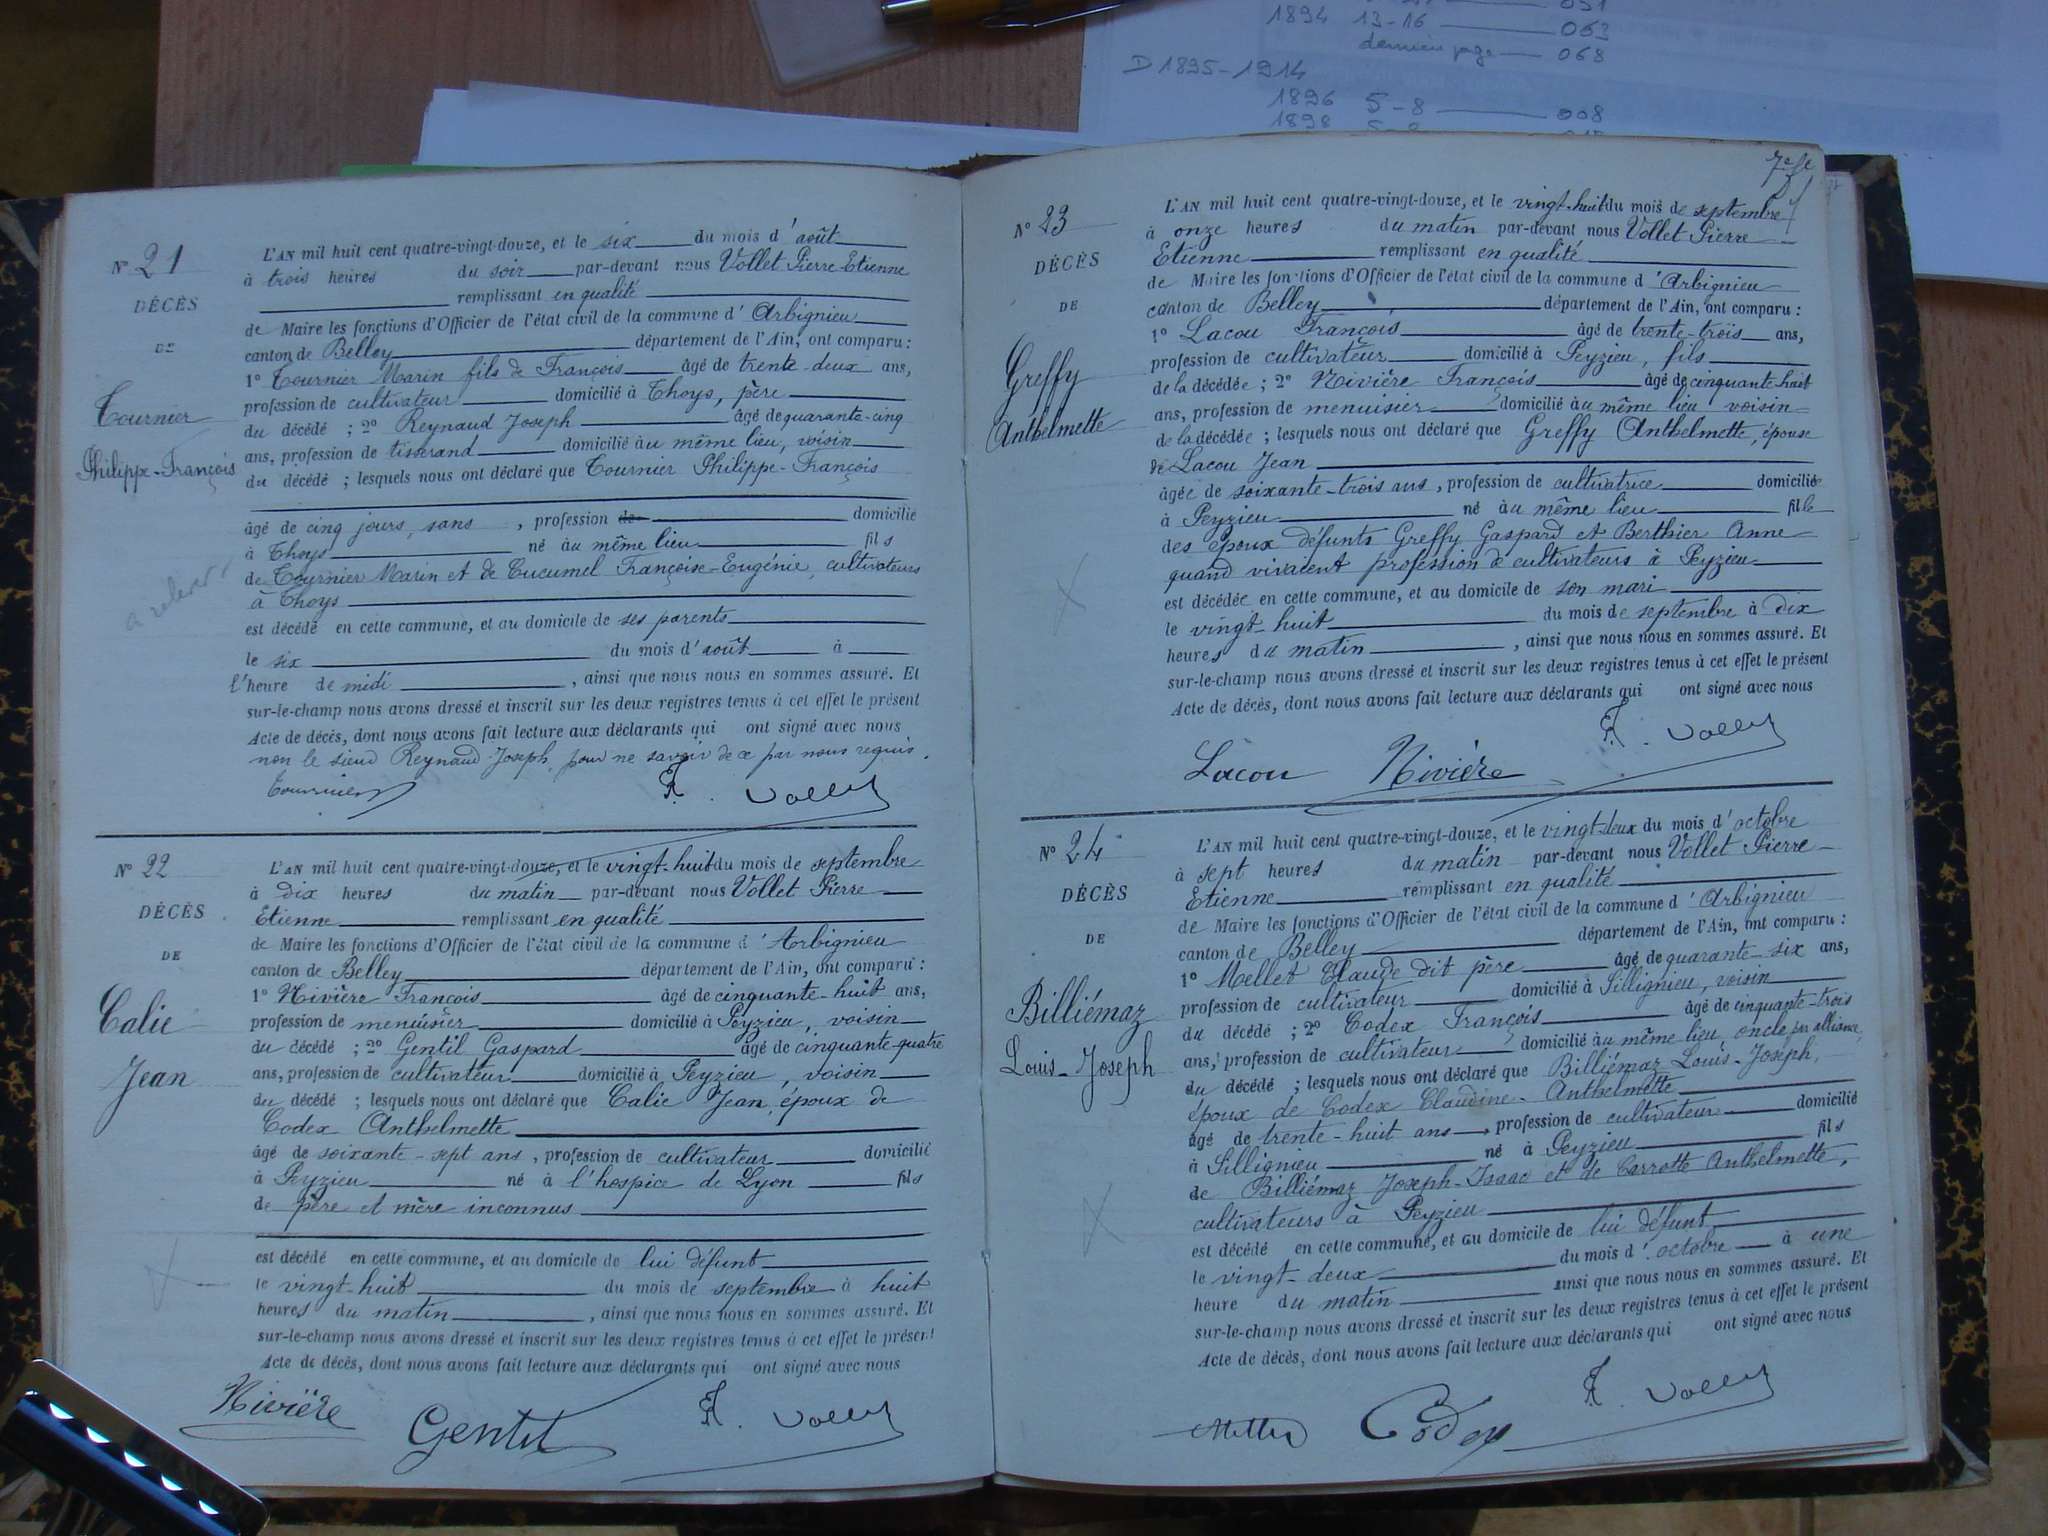 1894 13-16 — 063
dernière page — 068
D 1895-1914
1896 5-8 — 008
1898
N° 21
DÉCÈS
DE
Tournier
Philippe-François
à relever
L'AN mil huit cent quatre-vingt-douze, et le six du mois d'août
à trois heures du soir par-devant nous Vollet Pierre Etienne
remplissant en qualité
de Maire les fonctions d'Officier de l'état civil de la commune d'Arbignieu
canton de Belley département de l'Ain, ont comparu :
1° Tournier Marin fils de François âgé de trente-deux ans,
profession de cultivateur domicilié à Thoys, père
du décédé ; 2° Reynaud Joseph âgé de quarante-cinq
ans, profession de tisserand domicilié au même lieu, voisin
du décédé ; lesquels nous ont déclaré que Tournier Philippe-François
âgé de cinq jours, sans , profession de domicilié
à Thoys né au même lieu fils
de Tournier Marin et de Cucumel Françoise-Eugénie, cultivateurs
à Thoys
est décédé en cette commune, et au domicile de ses parents
le six du mois d'août à
l'heure de midi , ainsi que nous nous en sommes assuré. Et
sur-le-champ nous avons dressé et inscrit sur les deux registres tenus à cet effet le présent
Acte de décès, dont nous avons fait lecture aux déclarants qui ont signé avec nous
non le sieur Reynaud Joseph, pour ne savoir de ce par nous requis.
Tournier Vollet
N° 22
DÉCÈS
DE
Calie
Jean
L'AN mil huit cent quatre-vingt-douze, et le vingt-huit du mois de septembre
à dix heures du matin par-devant nous Vollet Pierre
Etienne remplissant en qualité
de Maire les fonctions d'Officier de l'état civil de la commune d'Arbignieu
canton de Belley département de l'Ain, ont comparu :
1° Nivière François âgé de cinquante-huit ans,
profession de menuisier domicilié à Peyzieu, voisin
du décédé ; 2° Gentil Gaspard âgé de cinquante-quatre
ans, profession de cultivateur domicilié à Peyzieu, voisin
du décédé ; lesquels nous ont déclaré que Calie Jean, époux de
Codex Anthelmette
âgé de soixante-sept ans, profession de cultivateur domicilié
à Peyzieu né à l'hospice de Lyon fils
de père et mère inconnus
est décédé en cette commune, et au domicile de lui défunt
le vingt-huit du mois de septembre à huit
heures du matin , ainsi que nous nous en sommes assuré. Et
sur-le-champ nous avons dressé et inscrit sur les deux registres tenus à cet effet le présent
Acte de décès, dont nous avons fait lecture aux déclarants qui ont signé avec nous
Nivière Gentil Vollet
N° 23
DÉCÈS
DE
Greffy
Anthelmette
L'AN mil huit cent quatre-vingt-douze, et le vingt-huit du mois de septembre
à onze heures du matin par-devant nous Vollet Pierre
Etienne remplissant en qualité
de Maire les fonctions d'Officier de l'état civil de la commune d'Arbignieu
canton de Belley département de l'Ain, ont comparu :
1° Lacou François âgé de trente-trois ans,
profession de cultivateur domicilié à Peyzieu, fils
de la décédée ; 2° Nivière François âgé de cinquante-huit
ans, profession de menuisier domicilié au même lieu voisin
de la décédée ; lesquels nous ont déclaré que Greffy Anthelmette, épouse
de Lacou Jean
âgée de soixante-trois ans, profession de cultivatrice domiciliée
à Peyzieu né au même lieu fille
des époux défunts Greffy Gaspard et Berthier Anne
quand vivaient profession de cultivateurs à Peyzieu
est décédée en cette commune, et au domicile de son mari
le vingt-huit du mois de septembre à dix
heures du matin , ainsi que nous nous en sommes assuré. Et
sur-le-champ nous avons dressé et inscrit sur les deux registres tenus à cet effet le présent
Acte de décès, dont nous avons fait lecture aux déclarants qui ont signé avec nous
Lacou Nivière Vollet
N° 24
DÉCÈS
DE
Billiémaz
Louis-Joseph
L'AN mil huit cent quatre-vingt-douze, et le vingt-deux du mois d'octobre
à sept heures du matin par-devant nous Vollet Pierre
Etienne remplissant en qualité
de Maire les fonctions d'Officier de l'état civil de la commune d'Arbignieu
canton de Belley département de l'Ain, ont comparu :
1° Mellet Claude dit père âgé de quarante-six ans,
profession de cultivateur domicilié à Sillignieu, voisin
du décédé ; 2° Codex François âgé de cinquante-trois
ans, profession de cultivateur domicilié au même lieu, oncle par alliance
du décédé ; lesquels nous ont déclaré que Billiémaz Louis-Joseph,
époux de Codex Claudine-Anthelmette
âgé de trente-huit ans, profession de cultivateur domicilié
à Sillignieu né à Peyzieu fils
de Billiémaz Joseph-Isaac et de Carrotte Anthelmette,
cultivateurs à Peyzieu
est décédé en cette commune, et au domicile de lui défunt
le vingt-deux du mois d'octobre à une
heure du matin ainsi que nous nous en sommes assuré. Et
sur-le-champ nous avons dressé et inscrit sur les deux registres tenus à cet effet le présent
Acte de décès, dont nous avons fait lecture aux déclarants qui ont signé avec nous
Mellet Codex Vollet